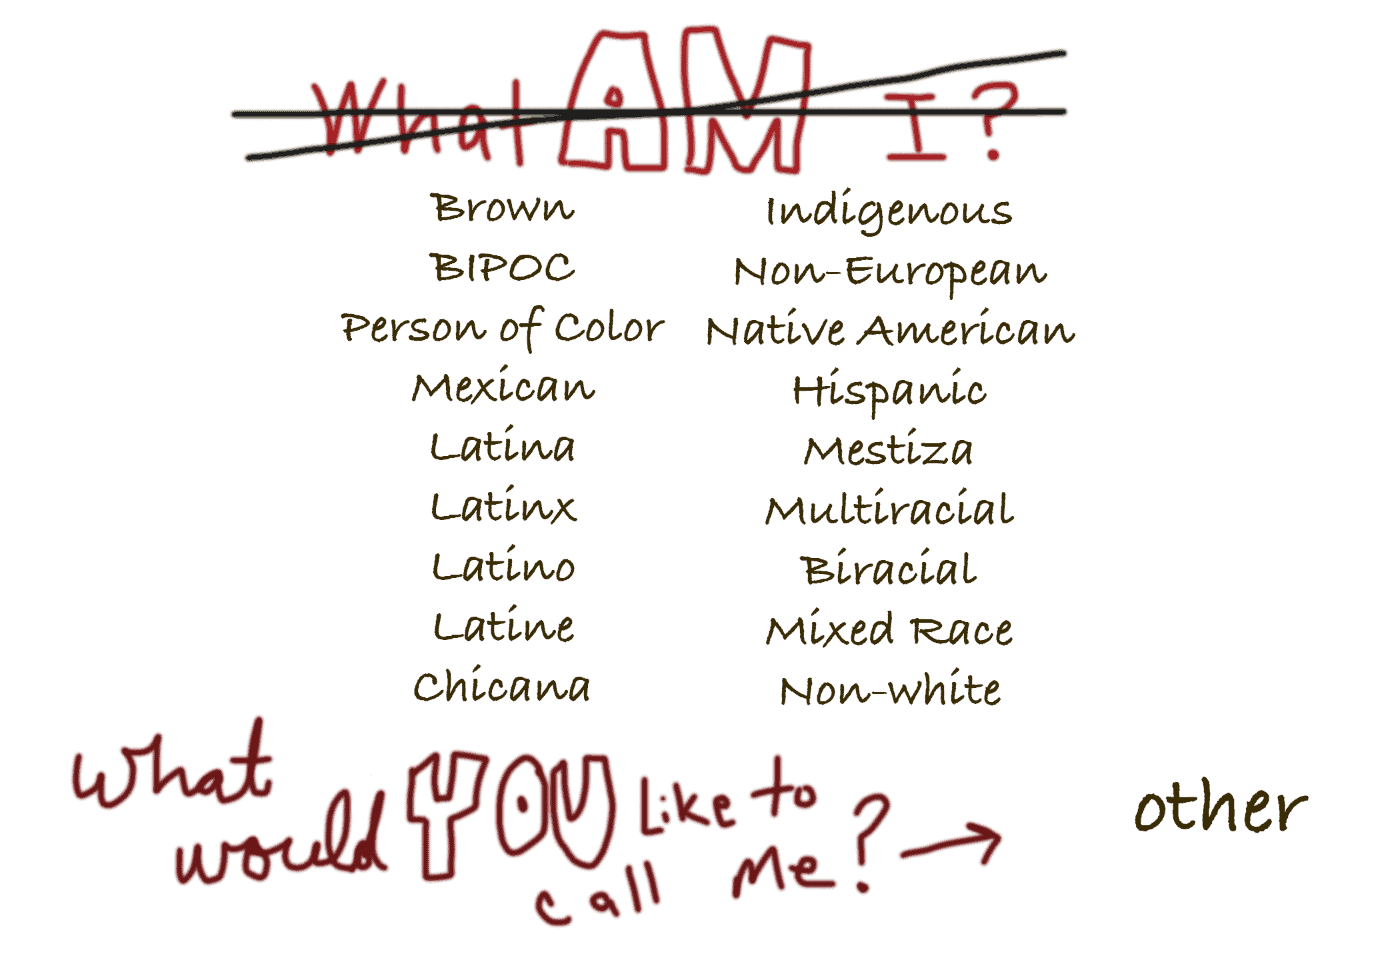 What AM I?
Brown
BIPOC
Person of Color
Mexican
Latina
Latinx
Latino
Latine
Chicana
Indigenous
Non-European
Native American
Hispanic
Mestiza
Multiracial
Biracial
Mixed Race
Non-white
what
would YOU like to
call me? →
other